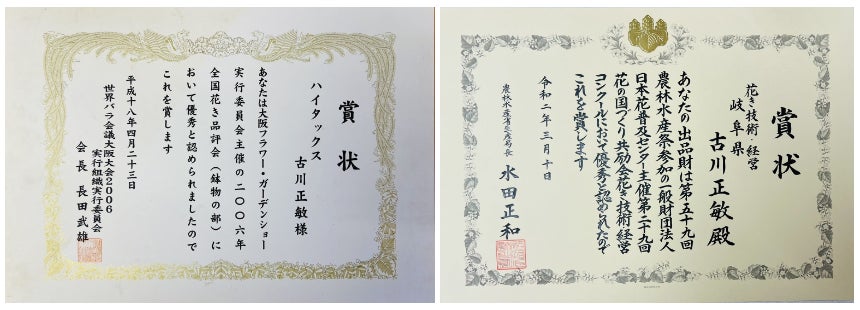 賞状
ハイタックス
古川正敏様
あなたは大阪フラワー・ガーデンショー
実行委員会主催の二〇〇六年
全国花き品評会(鉢物の部)に
おいて優秀と認められましたので
これを賞します
平成十八年四月二十三日
世界バラ会議大阪大会2006
実行組織実行委員会
会長 長田武雄
賞状
花き技術・経営
岐阜県
古川正敏殿
あなたの出品財は第五十九回
農林水産祭参加の一般財団法人
日本花普及センター主催第二十九回
花の国づくり共励会花き技術・経営
コンクールにおいて優秀と認められたので
これを賞します
令和二年三月十日
農林水産省生産局長
水田正和